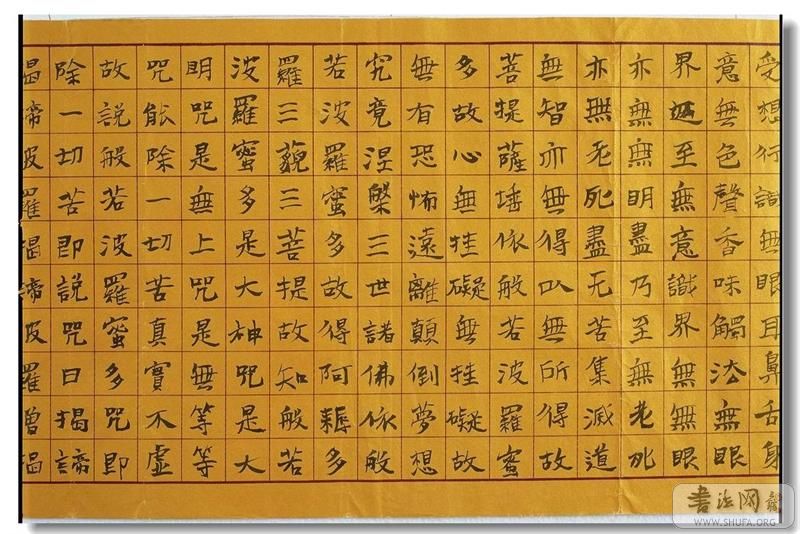 受想行識無眼耳鼻舌身
意無色聲香味觸法無眼
界廼至無意識界無無眼
亦無無明盡乃至無老死
亦無老死盡无苦集滅道
無智亦無得以無所得故
菩提薩埵依般若波羅蜜
多故心無挂礙無挂礙故
無有恐怖遠離顛倒夢想
究竟涅槃三世諸佛依般
若波羅蜜多故得阿耨多
羅三藐三菩提故知般若
波羅蜜多是大神咒是大
明咒是無上咒是無等等
咒能除一切苦真實不虛
故說般若波羅蜜多咒即
除一切苦即說咒曰揭諦
揭諦波羅揭諦波羅僧揭
书法网
WWW.SHUFA.ORG